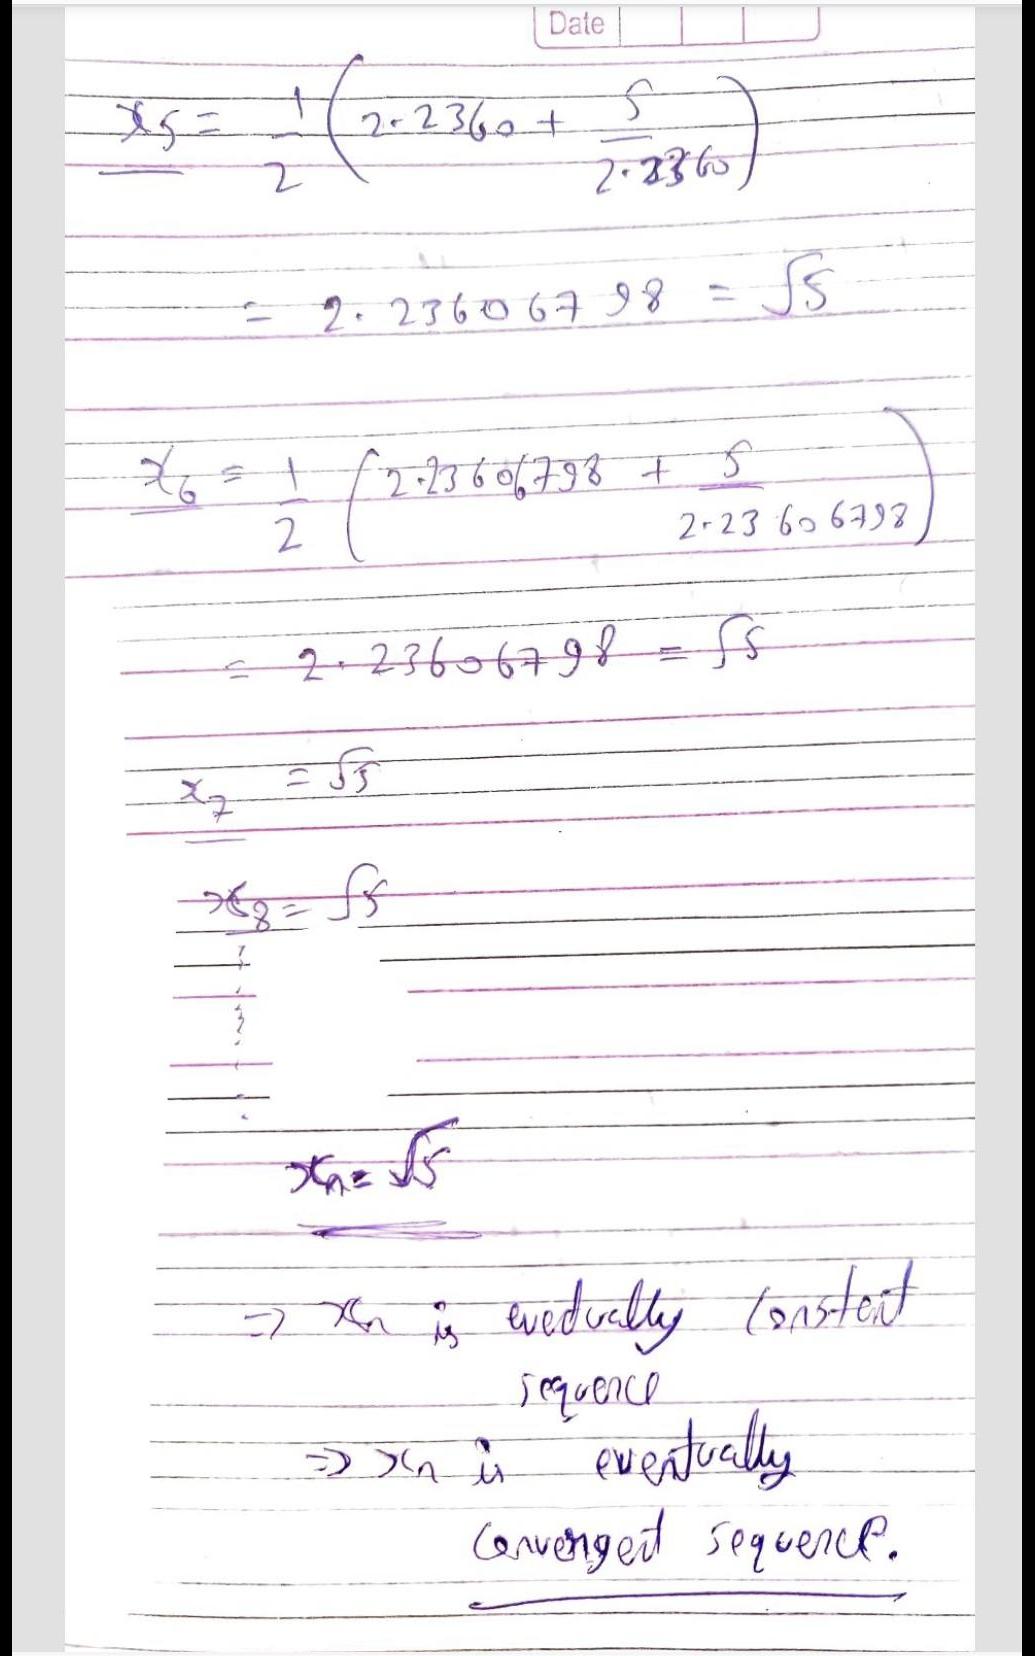 Date
x₅ = 1/2 (2.2360 + 5/2.2360)
= 2.236067798 = √5
x₆ = 1/2 (2.23606798 + 5/2.23606798)
= 2.23606798 = √5
x₇ = √5
x₈ = √5
xₙ = √5
⇒ xₙ is evedually constent
sequence
⇒ xₙ is eventually
convergent sequence.